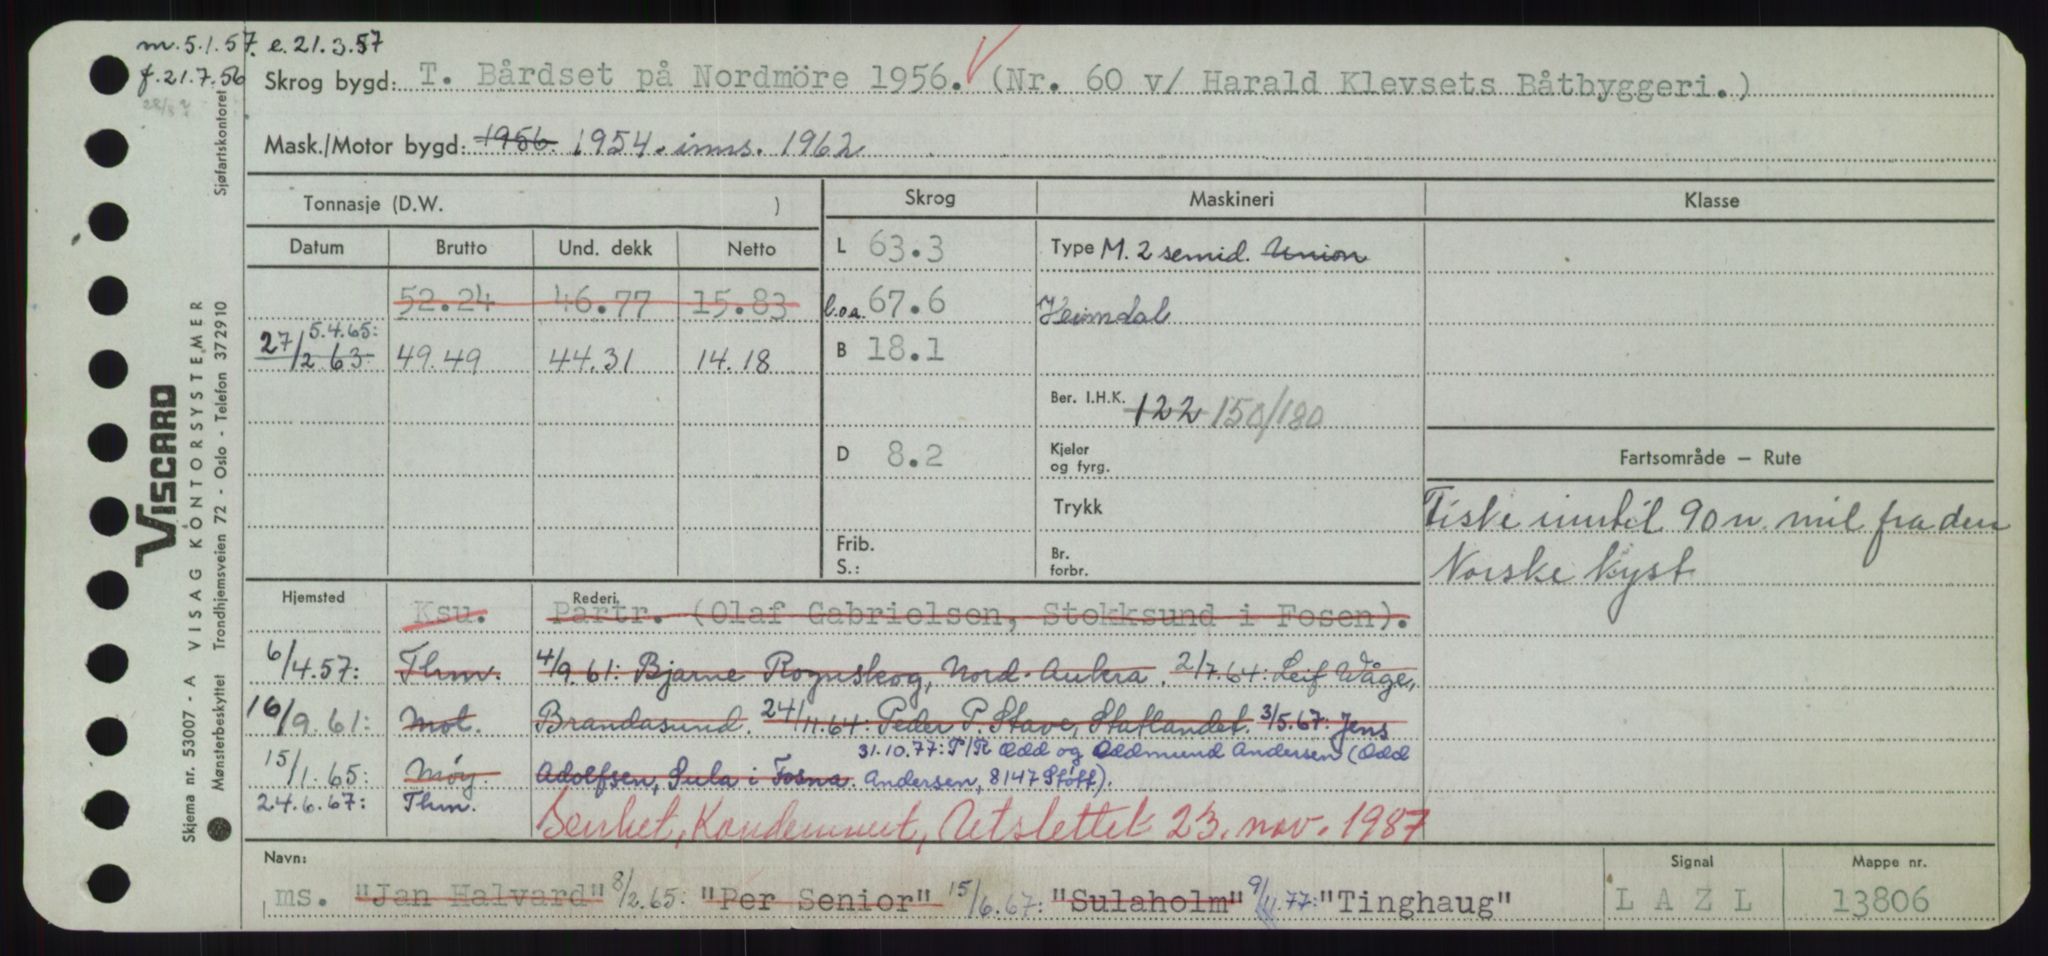 m. 5.1.57. e. 21.3.57
f. 21.7.56
Skrog bygd: T. Bårdset på Nordmöre 1956. (Nr. 60 v/ Harald Klevsets Båtbyggeri.)
Mask./Motor bygd: 1956. 1954. inns. 1962
Tonnasje (D.W. ) Skrog Maskineri Klasse
Datum Brutto Und. dekk Netto L 63.3 Type M. 2 semid. Union
52.24 46.77 15.83 l.o.a. 67.6 Heimdal
5.4.65:
27/2 63. 49.49 44.31 14.18 B 18.1
Ber. I.H.K. 122 150/180
D 8.2 Kjeler og fyrg. Fartsområde — Rute
Trykk Fiske inntil 90 n. mil fra den
Frib. S.: Br. forbr. Norske kyst
Hjemsted Rederi
Ksu. Partr. (Olaf Gabrielsen, Stokksund i Fosen).
6/4.57: Thm. 4/9.61: Bjarne Rognskog, Nord-Aukra. 2/7.64: Leif Våge,
16/9.61: Mol. Brandasund. 24/11.64: Peder P. Stave, Statlandet. 3/5.67: Jens
31.10.77: P/R Odd og Oddmund Andersen (Odd
15/1.65: Møy. Adolfsen, Sula i Fosna. Andersen, 8147 Støtt).
24.6.67: Thm. Senket, Kondemnert, Utslettet 23. nov. 1987
Navn: Signal Mappe nr.
ms. "Jan Halvard" 8/2.65: "Per Senior" 15/6.67: "Sulaholm" 9/11.77: "Tinghaug" L A Z L 13806
VISCARD
VISAG KONTORSYSTEMER
Skjema nr. 53007 - A
Mønsterbeskyttet Trondhjemsveien 72 - Oslo - Telefon 372910 Sjøfartskontoret